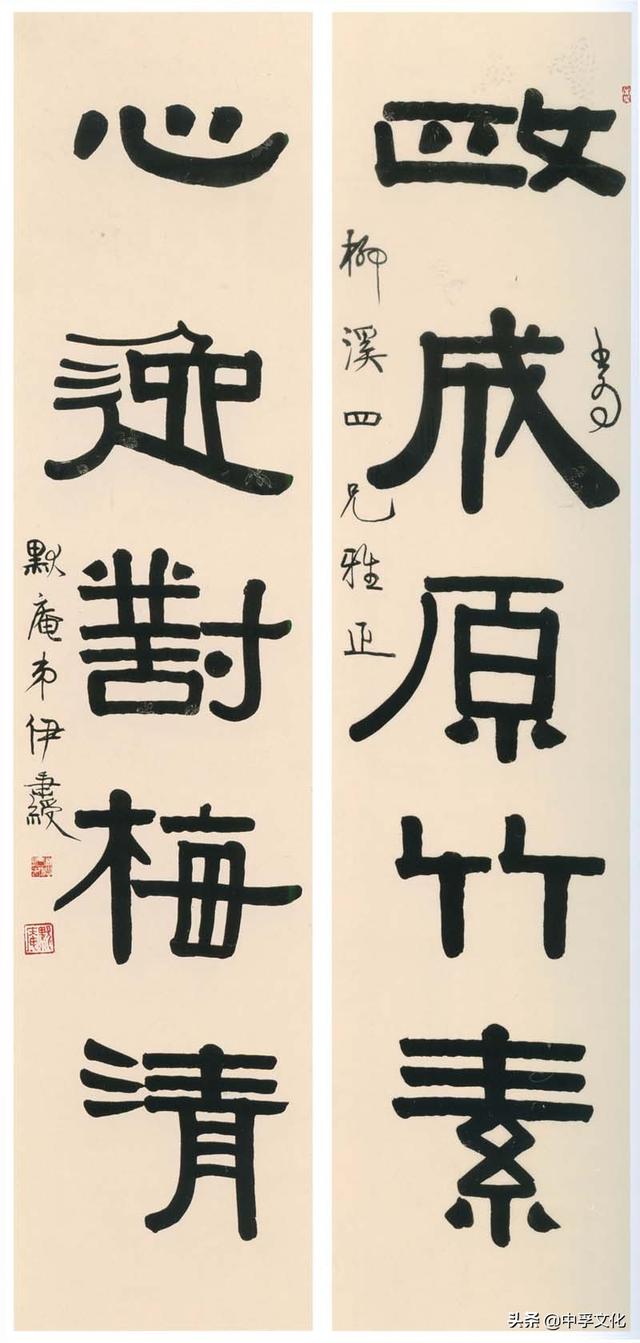 政成原竹素
書為
柳溪四兄雅正
心逸對梅清
默庵弟伊秉綬
头条 @中孚文化